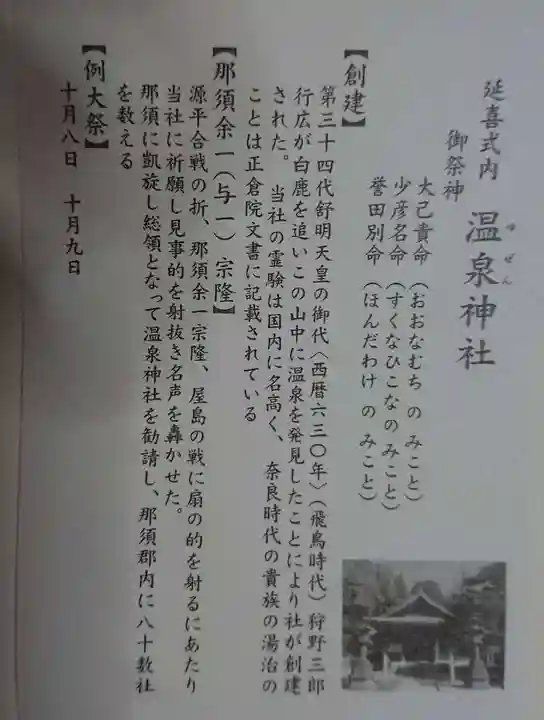 延喜式内 温泉神社
ゆぜん
御祭神
大己貴命（おおなむち のみこと）
少彦名命（すくなひこなのみこと）
誉田別命（ほんだわけ のみこと）
【創建】
第三十四代舒明天皇の御代〈西暦六三〇年〉（飛鳥時代）狩野三郎
行広が白鹿を追いこの山中に温泉を発見したことにより社が創建
された。 当社の霊験は国内に名高く、 奈良時代の貴族の湯治の
ことは正倉院文書に記載されている
【那須余一（与一）宗隆】
源平合戦の折、那須余一宗隆、屋島の戦に扇の的を射るにあたり
当社に祈願し見事的を射抜き名声を轟かせた。
那須に凱旋し総領となって温泉神社を勧請し、那須郡内に八十数社
を数える
【例大祭】
十月八日 十月九日